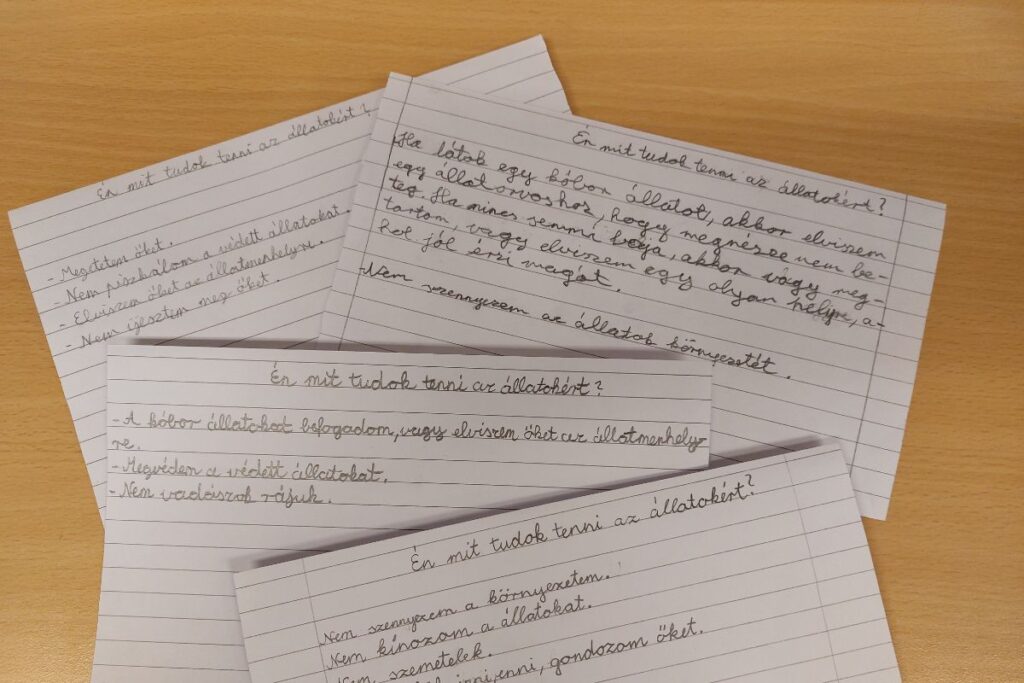 Én mit tudok tenni az állatokért?
- Megetetem őket.
- Nem piszkálom a védett állatokat.
- Elviszem őket az állatmenhelyre.
- Nem ijesztem meg őket.
Én mit tudok tenni az állatokért?
Ha látok egy kóbor állatot, akkor elviszem
egy állatorvoshoz, hogy megnézze nem be-
teg. Ha nincs semmi baja, akkor vagy meg-
tartom, vagy elviszem egy olyan helyre, a-
hol jól érzi magát.
Nem szennyezem az állatok környezetét.
Én mit tudok tenni az állatokért?
- A kóbor állatokat befogadom, vagy elviszem őket az állatmenhely-
re.
- Megvédem a védett állatokat.
- Nem vadászok rájuk.
Én mit tudok tenni az állatokért?
Nem szennyezem a környezetem.
Nem kínozom a állatokat.
Nem szemetelek.
inni, enni, gondozom őket.